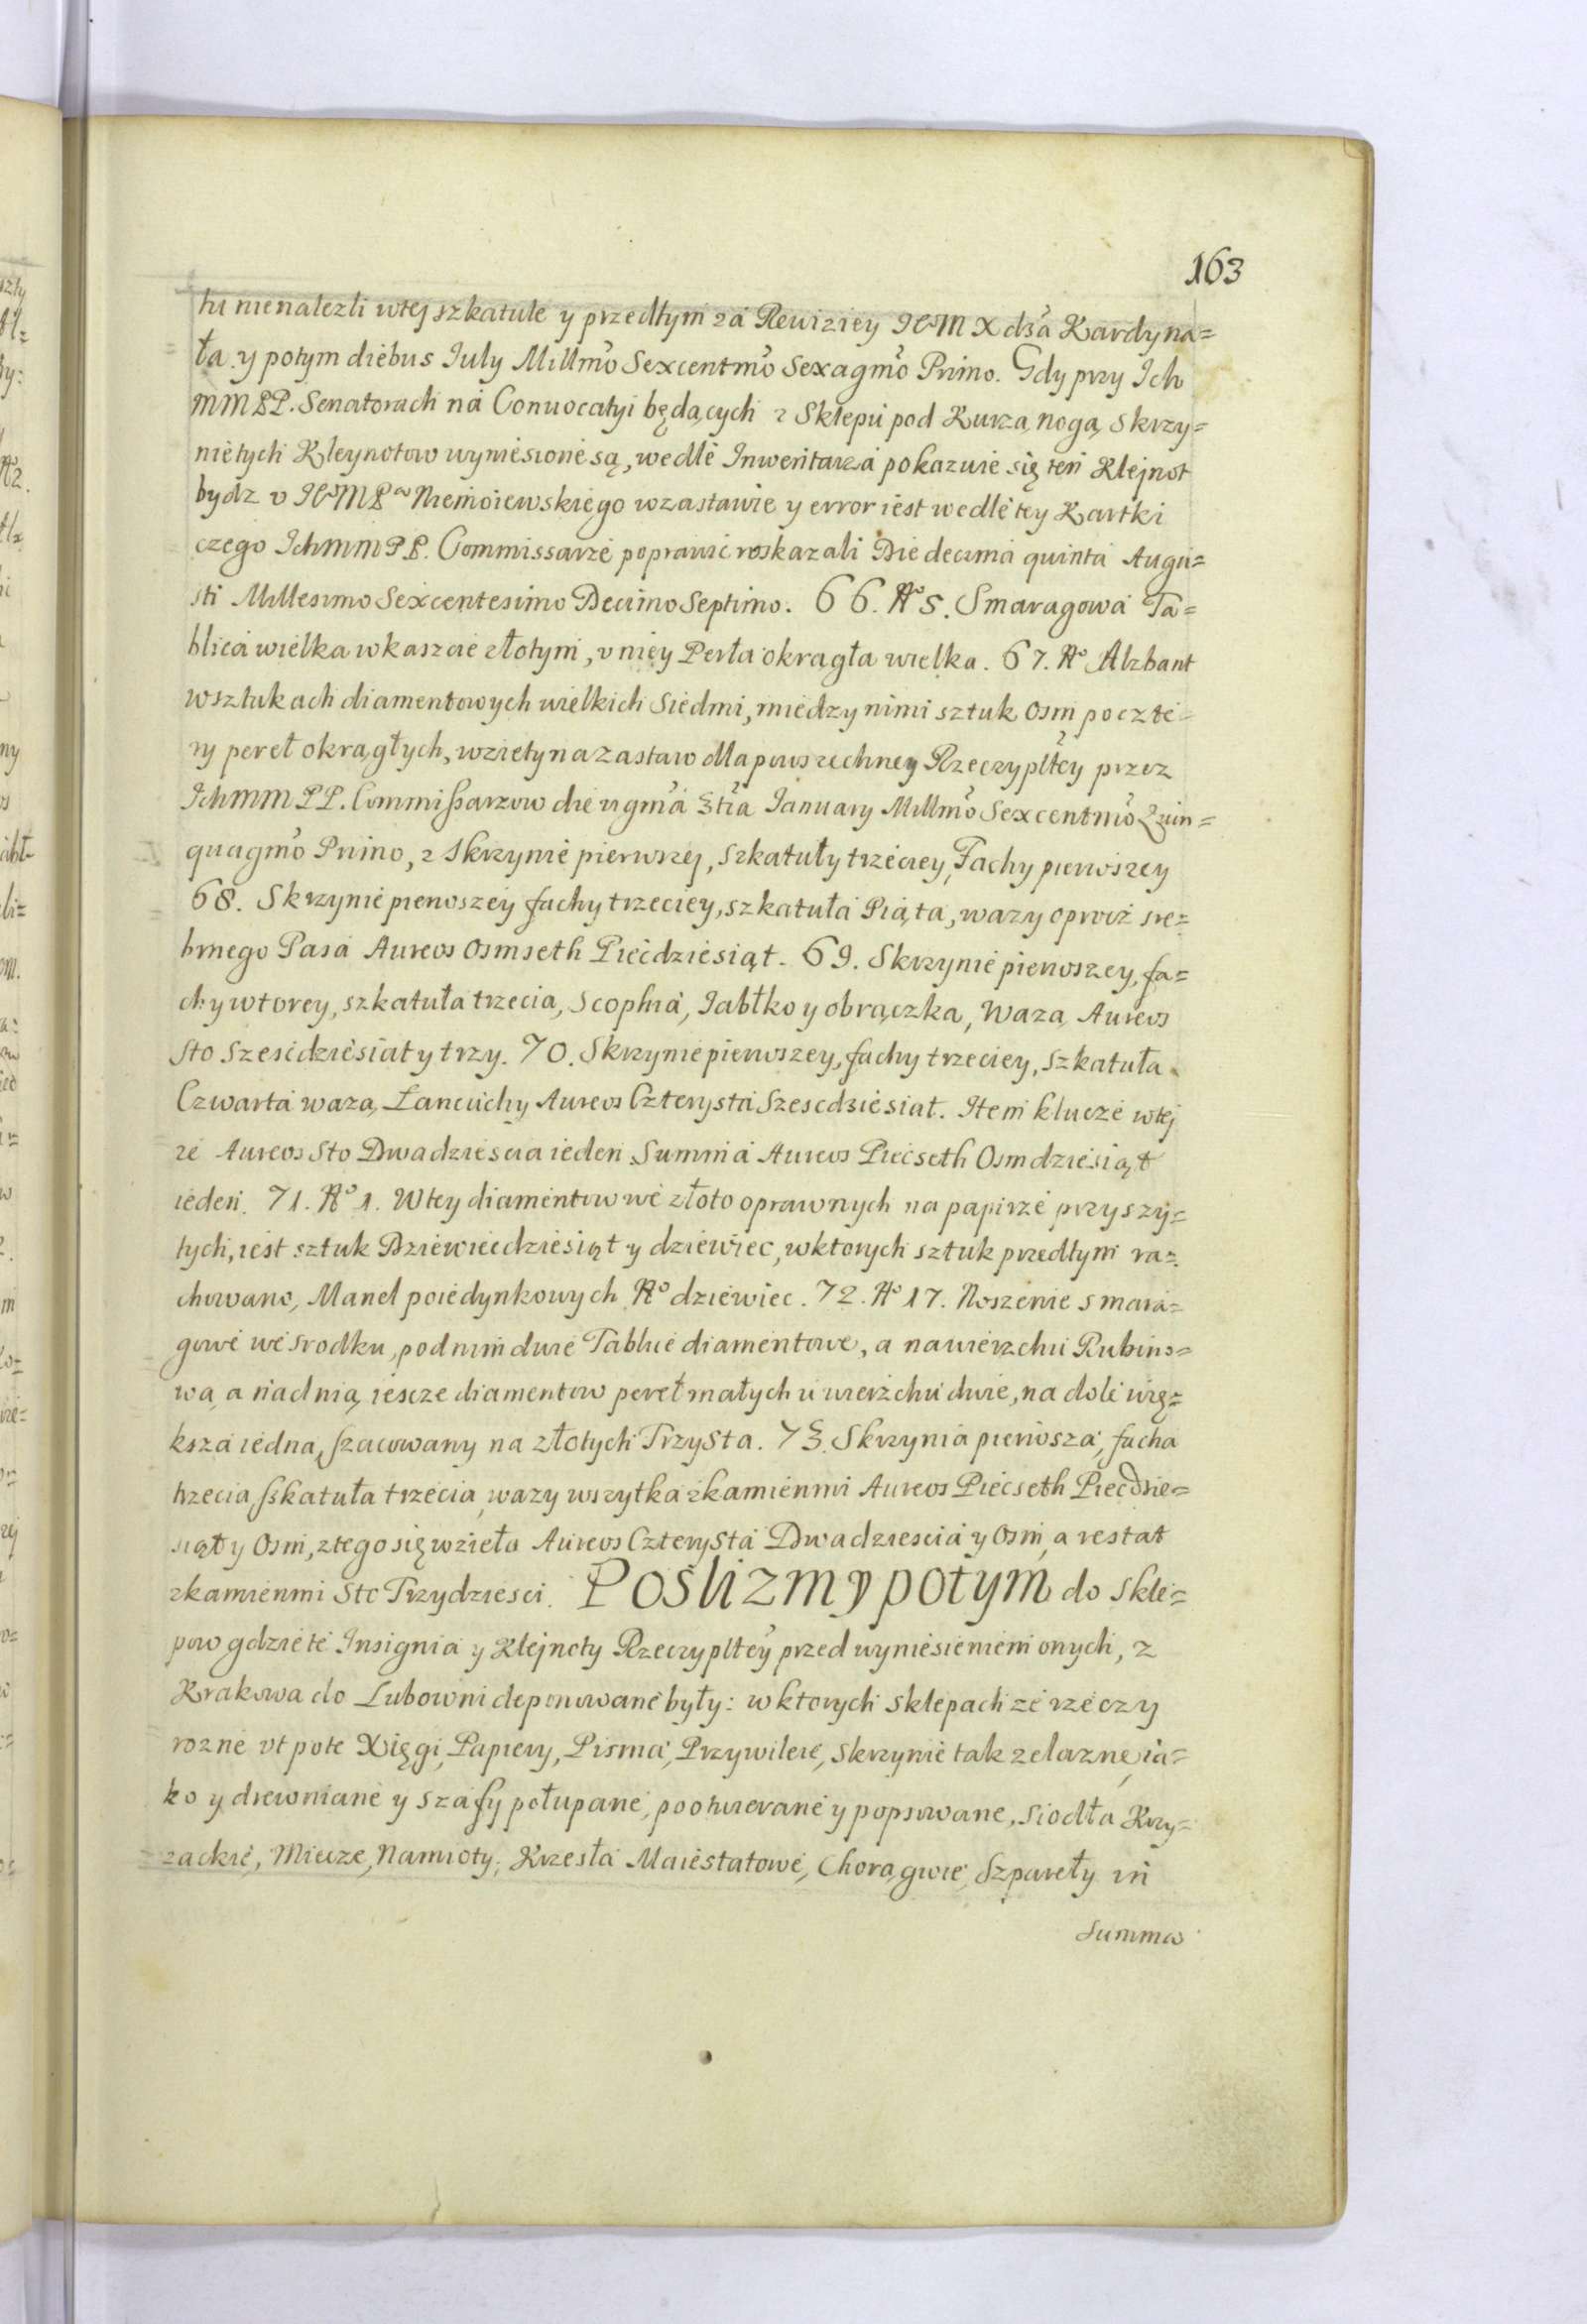 163
tu nienalezli wtej szkatule y przedtym za Rewiziey JeoM Xdza Kardyna=
ła y potym diebus July Millmo Sexcentmo Sexagmo Primo. Gdy przy Ich
MM PP. Senatorach na Conuocatyi będących z Sklepu pod Kurzą nogą skrzy=
nie tych Kleynotow wyniesione są, wedle Inwentarza pokazuie się ten Klejnot
bydz v JeoMPa Niemoiewskiego wzastawie y error iest wedle tey Kartki
czego IchMM PP. Commissarze poprawić roskazali Die decima quinta Augu=
sti Millesimo Sexcentesimo Decimo Septimo. 66. No 5. Smaragowa Ta=
blica wielka wkaszcie złotym, v niey Perła okrągła wielka. 67. No Alzbant
wsztukach diamentowych wielkich Siedmi, miedzy nimi sztuk osm po czte=
ry pereł okrągłych, wziety na zastaw dla powszechney Rzeczypltey przez
IchMM PP. Commissarzow die vigma 3tia January Millmo Sexcentmo Quin=
quagmo Primo, z Skrzynie pierwszej, szkatuły trzeciey, Fachy pierwszey
68. Skrzynie pierwszey fachy trzeciey, szkatuła Piąta, wazy oprocz sre=
brnego Pasa Aureos Osmseth Piećdziesiąt. 69. Skrzynie pierwszey, fa=
chy wtorey, szkatuła trzecia, Scophia, Jabłko y obrączka, Wazą Aureos
Sto Sześćdziesiat y trzy. 70. Skrzynie pierwszey, fachy trzeciey, szkatuła
Czwarta wazą Lancuchy Aureos Czterysta Szescdziesiat. Item klucze wtej
ze Aureos Sto Dwadziescia ieden Summa Aureos Piećseth Osmdziesiąt
ieden. 71. No 1. Wtey diamentow we złoto oprawnych na papirze przyszy=
tych, iest sztuk Dziewiećdziesiąt y dziewiec, wktorych sztuk przedtym ra=
chowano, Manel poiedynkowych No dziewiec. 72. No 17. Noszenie smara=
gowe we srodku, pod nim dwie Tablice diamentowe, a nawierzchu Rubino=
wa, a nad nią iescze diamentow pereł małych u wierzchu dwie, na dole wię=
ksza iedna, szacowany na złotych Trzysta. 73. Skrzynia pierwsza, facha
trzecia, szkatuła trzecia, wazy wszytka zkamienmi Aureos Piećseth Piećdzie=
siąt y Osm, ztego się wzieła Aureos Czterysta Dwadziescia y Osm, a restat
zkamienmi Sto Trzydziesci. Poslizmy potym do skle=
pow gdzie te Insignia y Klejnoty Rzeczypltey przed wyniesieniem onych, z
Krakowa do Lubowni deponowane były: w ktorych sklepach ze rzeczy
rozne vt pote Xięgi, Papiery, Pisma, Przywileie, skrzynie tak zelazne, ia=
ko y drewniane y szafy połupane, pootwierane y popsowane, siodła Krzy=
zackie, Miecze, Namioty, Krzesła Maiestatowe, Chorągwie, Szpareły in
summa